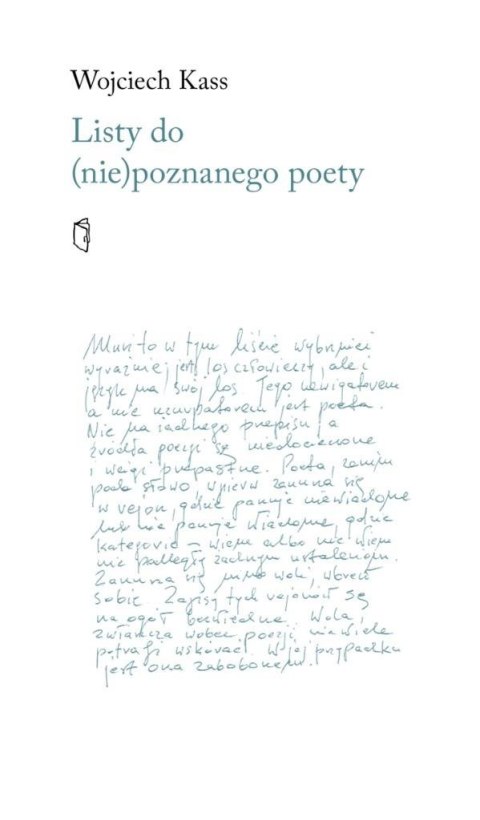 Wojciech Kass
Listy do
(nie)poznanego poety
Musi to w tym liście wybrzmieć
wyraźniej, jest los człowieczy, ale i
język ma swój los. Jego nawigatorem
a nie uzurpatorem jest poeta.
Nie ma żadnego przepisu, a
źródła poezji są niedocieczone
i wciąż przepastne. Poeta, zanim
pada słowo, wpierw zanurza się
w rejon, gdzie panuje niewiadome
lub nie panuje wiadome, gdzie
kategorie – wiem albo nie wiem
nie podlegają żadnym ustaleniom.
Zanurza się mimo woli, wbrew
sobie. Zapisy tych rejonów są
na ogół bezwiedne. Wola,
zwłaszcza wobec poezji niewiele
potrafi wskórać. W jej przypadku
jest ona zabobonem.